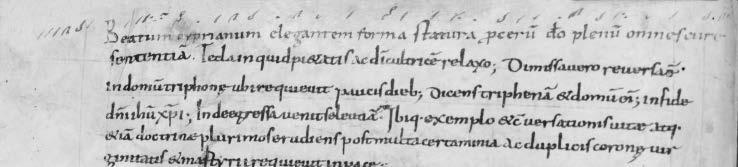 Beatum cyprianum elegantem forma statura, pcerū dō plenū omnes cure
sententiā. Tecla inquid pietatis ac dī cultricē relaxo; Dimissa vero reversa ē
in domum triphone ubi requievit paucis dieb; Dicens triphenā & domum ei; in fide
dñi ihū xp̄i; Inde egressa venit seleuciā. Ibiq. exemplo & cversationis vitae atq.
&iā doctrine plurimos erudiens post multa certamina ac duplicis corone vir
ginitatis & martyrii requievit in pace.